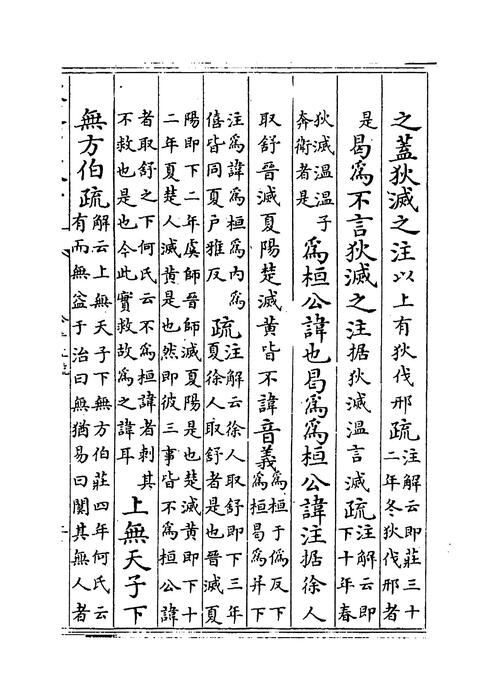 之蓋狄滅之注以上有狄伐邢疏注解云即莊三十
二年冬狄伐邢者
是曷為不言狄滅之注据狄滅溫言滅疏注解云即
下十年春
狄滅溫溫子
奔衛者是為桓公諱也曷為為桓公諱注据徐人
取舒晉滅夏陽楚滅黃皆不諱音義為桓于偽反下
為桓曷為并下
注為諱為桓為內為
僖皆同夏戶雅反疏注解云徐人取舒即下三年
夏徐人取舒者是也晉滅夏
陽即下二年虞師晉師滅夏陽是也楚滅黃即下十
二年夏楚人滅黃是也然即彼三事皆不為桓公諱
者取舒之下何氏云不為桓諱者刺其
不救也是也今此實救故為之諱耳上無天子下
無方伯疏解云上無天子下無方伯莊四年何氏云
有而無益于治曰無猶易曰闃其無人者